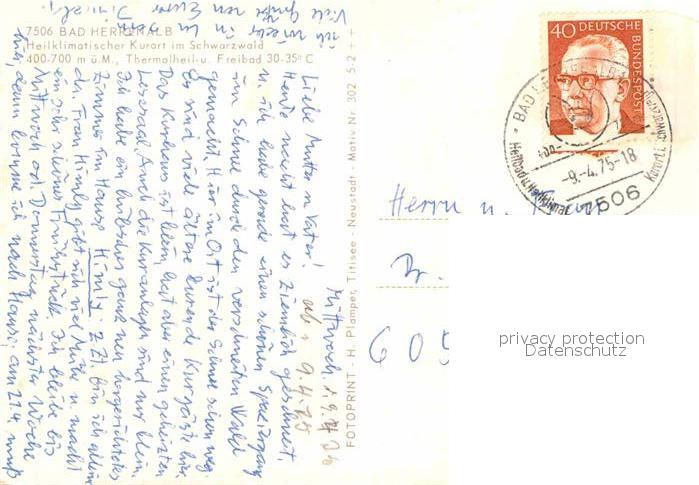 7506 BAD HERRENALB
Heilklimatischer Kurort im Schwarzwald
400-700 m ü.M., Thermalheil-u. Freibad 30-35° C
Mittwoch, d. 9.4.75
ab: 9.4.75
Liebe Mutter u. Vater!
Heute nacht hat es ziemlich geschneit,
u. ich habe gerade einen schönen Spaziergang
im Schnee durch den verschneiten Wald
gemacht. Hier im Ort ist der Schnee schon weg.
Es sind viele ältere Kurende Kurgäste hier.
Das Kurhaus ist klein, hat aber einen geheizten
Lesesaal. Auch die Kuranlagen sind nur klein.
Ich habe ein hübsches ganz neu hergerichtetes
Zimmer im Haus Himly. Z.Zt. bin ich alleine
da. Frau Himly gibt sich viel Mühe u. macht
ein sehr schönes Frühstück. Ich bleibe bis
Mittwoch od. Donnerstag nächster Woche
hier, dann komme ich nach Haus; am 21.4. muß
ich wieder in
Viele Grüße von Eurer
FOTOPRINT - H. Plamper, Titisee - Neustadt - Motiv Nr. 302 5.2 ++
40 DEUTSCHE
BUNDESPOST
BAD HERRENALB
-9.-4.75-18
7506
Herrn u. Frau
Dr.
605
privacy protection
Datenschutz